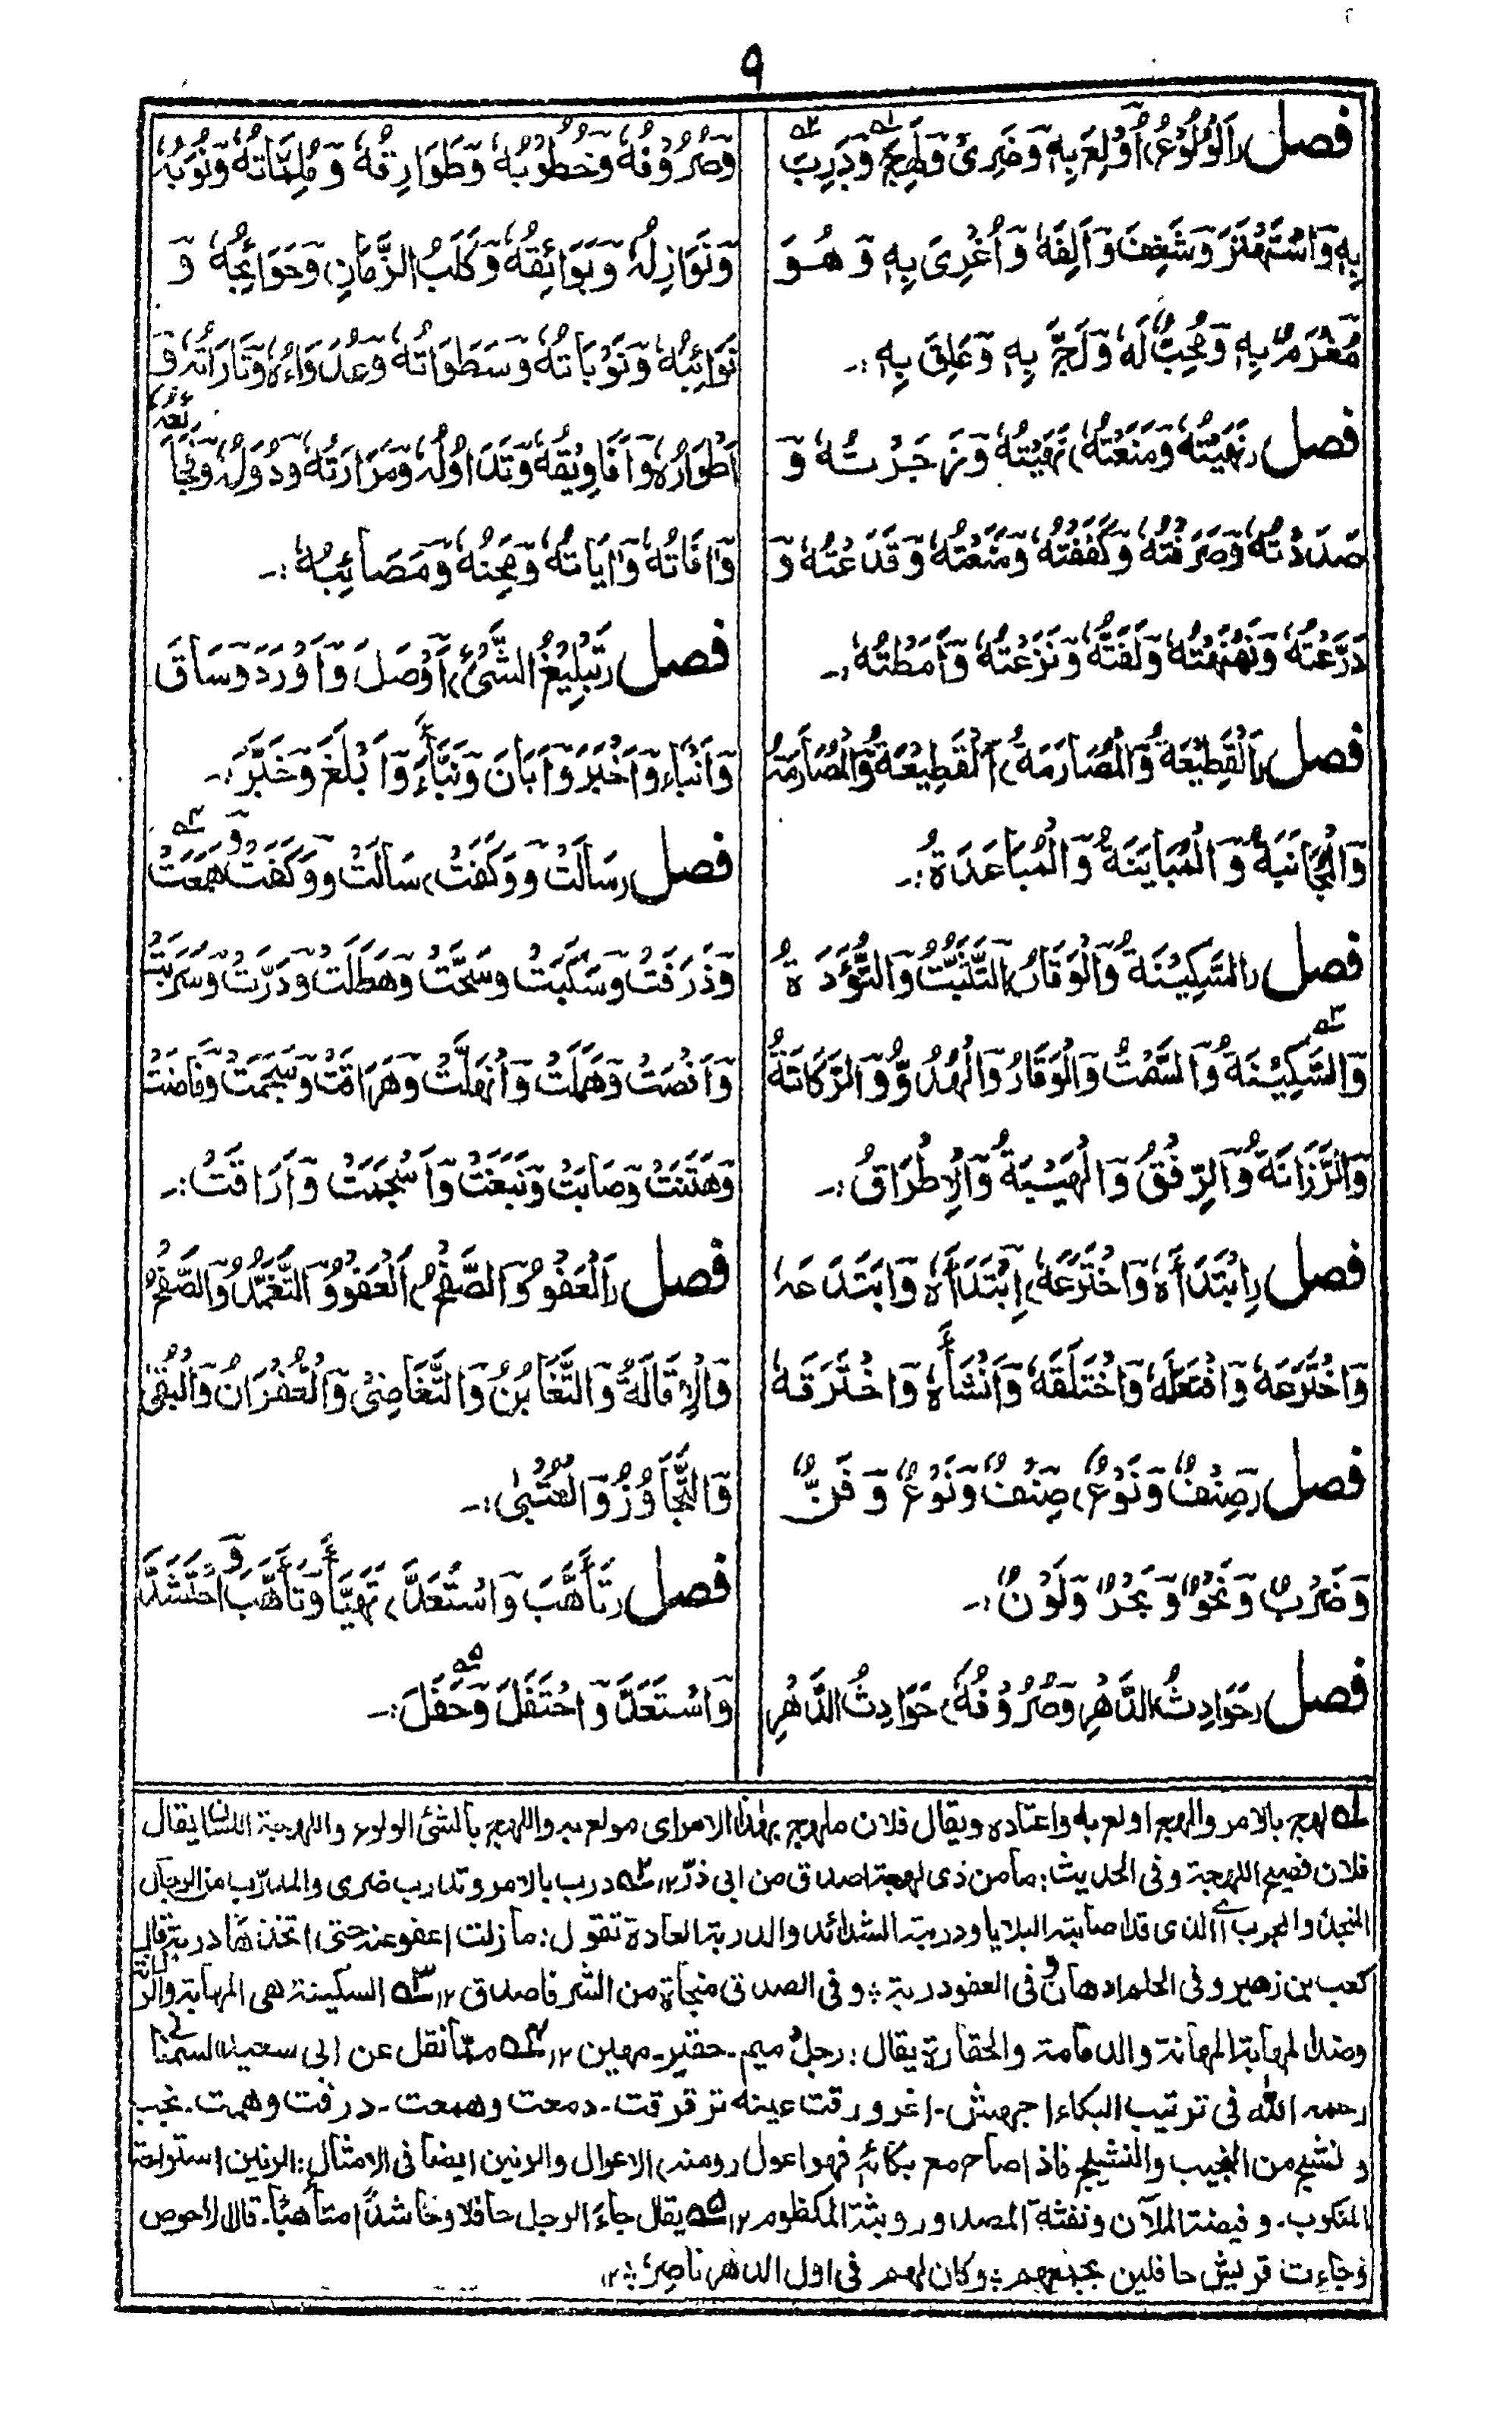 ٩
فصل (اَلْوُلُوْعُ) اُوْلِعَ بِهٖ وَضَرِیَ وَلَهِجَ وَدَرِبَ
بِهٖ وَاسْتَهْتَرَ وَشَغِفَ وَاَلِفَهٗ وَاُغْرِیَ بِهٖ وَهُوَ
مُغْرَمٌ بِهٖ وَمُحِبٌّ لَهٗ وَلَجَّ بِهٖ وَعَلِقَ بِهٖ :۔
فصل (نَهَیْتُهٗ وَمَنَعْتُهٗ) نَهَیْتُهٗ وَزَجَرْتُهٗ وَ
صَدَدْتُهٗ وَصَرَفْتُهٗ وَكَفَفْتُهٗ وَمَنَعْتُهٗ وَقَدَعْتُهٗ وَ
دَرَّعْتُهٗ وَنَهْنَهْتُهٗ وَلَفَتُّهٗ وَنَزَعْتُهٗ وَاَمَطْتُهٗ :۔
فصل (اَلْقَطِیْعَةُ وَالْمُصَارَمَةُ) اَلْقَطِیْعَةُ وَالْمُصَارَمَةُ
وَالْمُجَانَبَةُ وَالْمُبَایَنَةُ وَالْمُبَاعَدَةُ :۔
فصل (السَّكِیْنَةُ وَالْوَقَارُ) التَّثَبُّتُ وَالتُّؤَدَةُ
وَالسَّكِیْنَةُ وَالسَّمْتُ وَالْوَقَارُ وَالْهُدُوُّ وَالرَّكَانَةُ
وَالرَّزَانَةُ وَالرِّفْقُ وَالْهَیْبَةُ وَالْاِطْرَاقُ :۔
فصل (اِبْتَدَأَهٗ وَاخْتَرَعَهٗ) اِبْتَدَأَهٗ وَابْتَدَعَهٗ
وَاخْتَرَعَهٗ وَافْتَعَلَهٗ وَاخْتَلَقَهٗ وَاَنْشَأَهٗ وَاخْتَرَقَهٗ
فصل (صِنْفٌ وَنَوْعٌ) صِنْفٌ وَنَوْعٌ وَفَنٌّ
وَضَرْبٌ وَنَحْوٌ وَبَحْرٌ وَلَوْنٌ :۔
فصل (حَوَادِثُ الدَّهْرِ وَصُرُوْفُهٗ) حَوَادِثُ الدَّهْرِ
وَصُرُوْفُهٗ وَخُطُوْبُهٗ وَطَوَارِقُهٗ وَمُلِمَّاتُهٗ وَنُوَبُهٗ
وَنَوَازِلُهٗ وَبَوَائِقُهٗ وَكَلَبُ الزَّمَانِ وَحَوَائِجُهٗ وَ
نَوَائِبُهٗ وَنَوْبَاتُهٗ وَسَطَوَاتُهٗ وَعُدَوَاءُهٗ وَتَارَاتُهٗ وَ
اَطْوَارُهٗ وَاَفَاوِیْقُهٗ وَتَدَاوُلُهٗ وَمَرَارَتُهٗ وَدُوَلُهٗ وَفَجَائِعُهٗ
وَاٰفَاتُهٗ وَاٰیَاتُهٗ وَمِحَنُهٗ وَمَصَائِبُهٗ :۔
فصل (تَبْلِیْغُ الشَّیْءِ) اَوْصَلَ وَاَوْرَدَ وَسَاقَ
وَاَنْبَاءَ وَاَخْبَرَ وَاَبَانَ وَنَبَّأَءَ وَاَبْلَغَ وَخَبَّرَ :۔
فصل (سَالَتْ وَوَكَفَتْ) سَالَتْ وَوَكَفَتْ وَهَمَعَتْ
وَذَرَفَتْ وَسَكَبَتْ وَسَحَّتْ وَهَطَلَتْ وَدَرَّتْ وَسَرَبَتْ
وَانْصَبَّتْ وَهَمَلَتْ وَانْهَلَّتْ وَهَرَاقَتْ وَسَجَمَتْ وَفَاضَتْ
وَهَتَنَتْ وَصَابَتْ وَنَبَعَتْ وَاَسْجَمَتْ وَاَرَاقَتْ :۔
فصل (اَلْعَفْوُ وَالصَّفْحُ) اَلْعَفْوُ وَالتَّغَمُّدُ وَالصَّفْحُ
وَالْاِقَالَةُ وَالتَّغَابُنُ وَالتَّغَاضِیْ وَالْغُفْرَانُ وَالْبُقْیٰ
وَالتَّجَاوُزُ وَالْعُتْبٰی :۔
فصل (تَأَهَّبَ وَاسْتَعَدَّ) تَهَیَّأَ وَتَأَهَّبَ وَاحْتَشَدَّ
وَاسْتَعَدَّ وَاحْتَفَلَ وَحَفَلَ :۔
۱ه لهج بالامر والهج اولع به واعتاده ويقال فلان ملهوج بهذا الامر ای مولع به واللهج بالشئ الولوع واللهجة اللسان يقال
فلان فصيح اللهجة وفی الحديث: مامن ذی لهجة اصدق من ابی ذرّ ۱۲ ۲ه درب بالامر وتدرب ضری والمدرّب من الرجال
المنجذ والمجرب ای الذی قد اصابته البلايا ودربته الشدائد والدربة العادة تقول: مازلت اعفو عنه حتی اتخذها دربة قال
كعب بن زهير وفی الحلم ادهان وفی العفو دربة ؞ وفی الصدق منجاة من الشر فاصدق ۱۲ ۳ه السكينة هی المهابة والرزانة
وضد المهابة المهانة والدمامة والحقارة يقال: رجل دميم۔ حقير۔ مهين ۱۲ ۴ه ممّا نقل عن ابی سعيد السمنانی
رحمه الله فی ترتيب البكاء اجهش۔ اغرورقت عينه ترقرقت۔ دمعت وهمعت۔ ذرفت وهمت۔ نحب
ونشج من النحيب والنشيج فاذا صاح مع بكائه فهو اعول (ومنه) الاعوال والرنين ايضا فی الامثال: الرنين استراحة
المنكوب۔ وفيضة الملآن ونفثة المصدور وبثة المكظوم ۱۲ ۵ه يقال جاءَ الرجل حافلا وحاشدًا متأهبًا۔ قال الاحوص
وجاءت قريش حافلين بجمعهم ؞ وكان لهم فی اول الدهر ناصِرٌ ؞ ۱۲